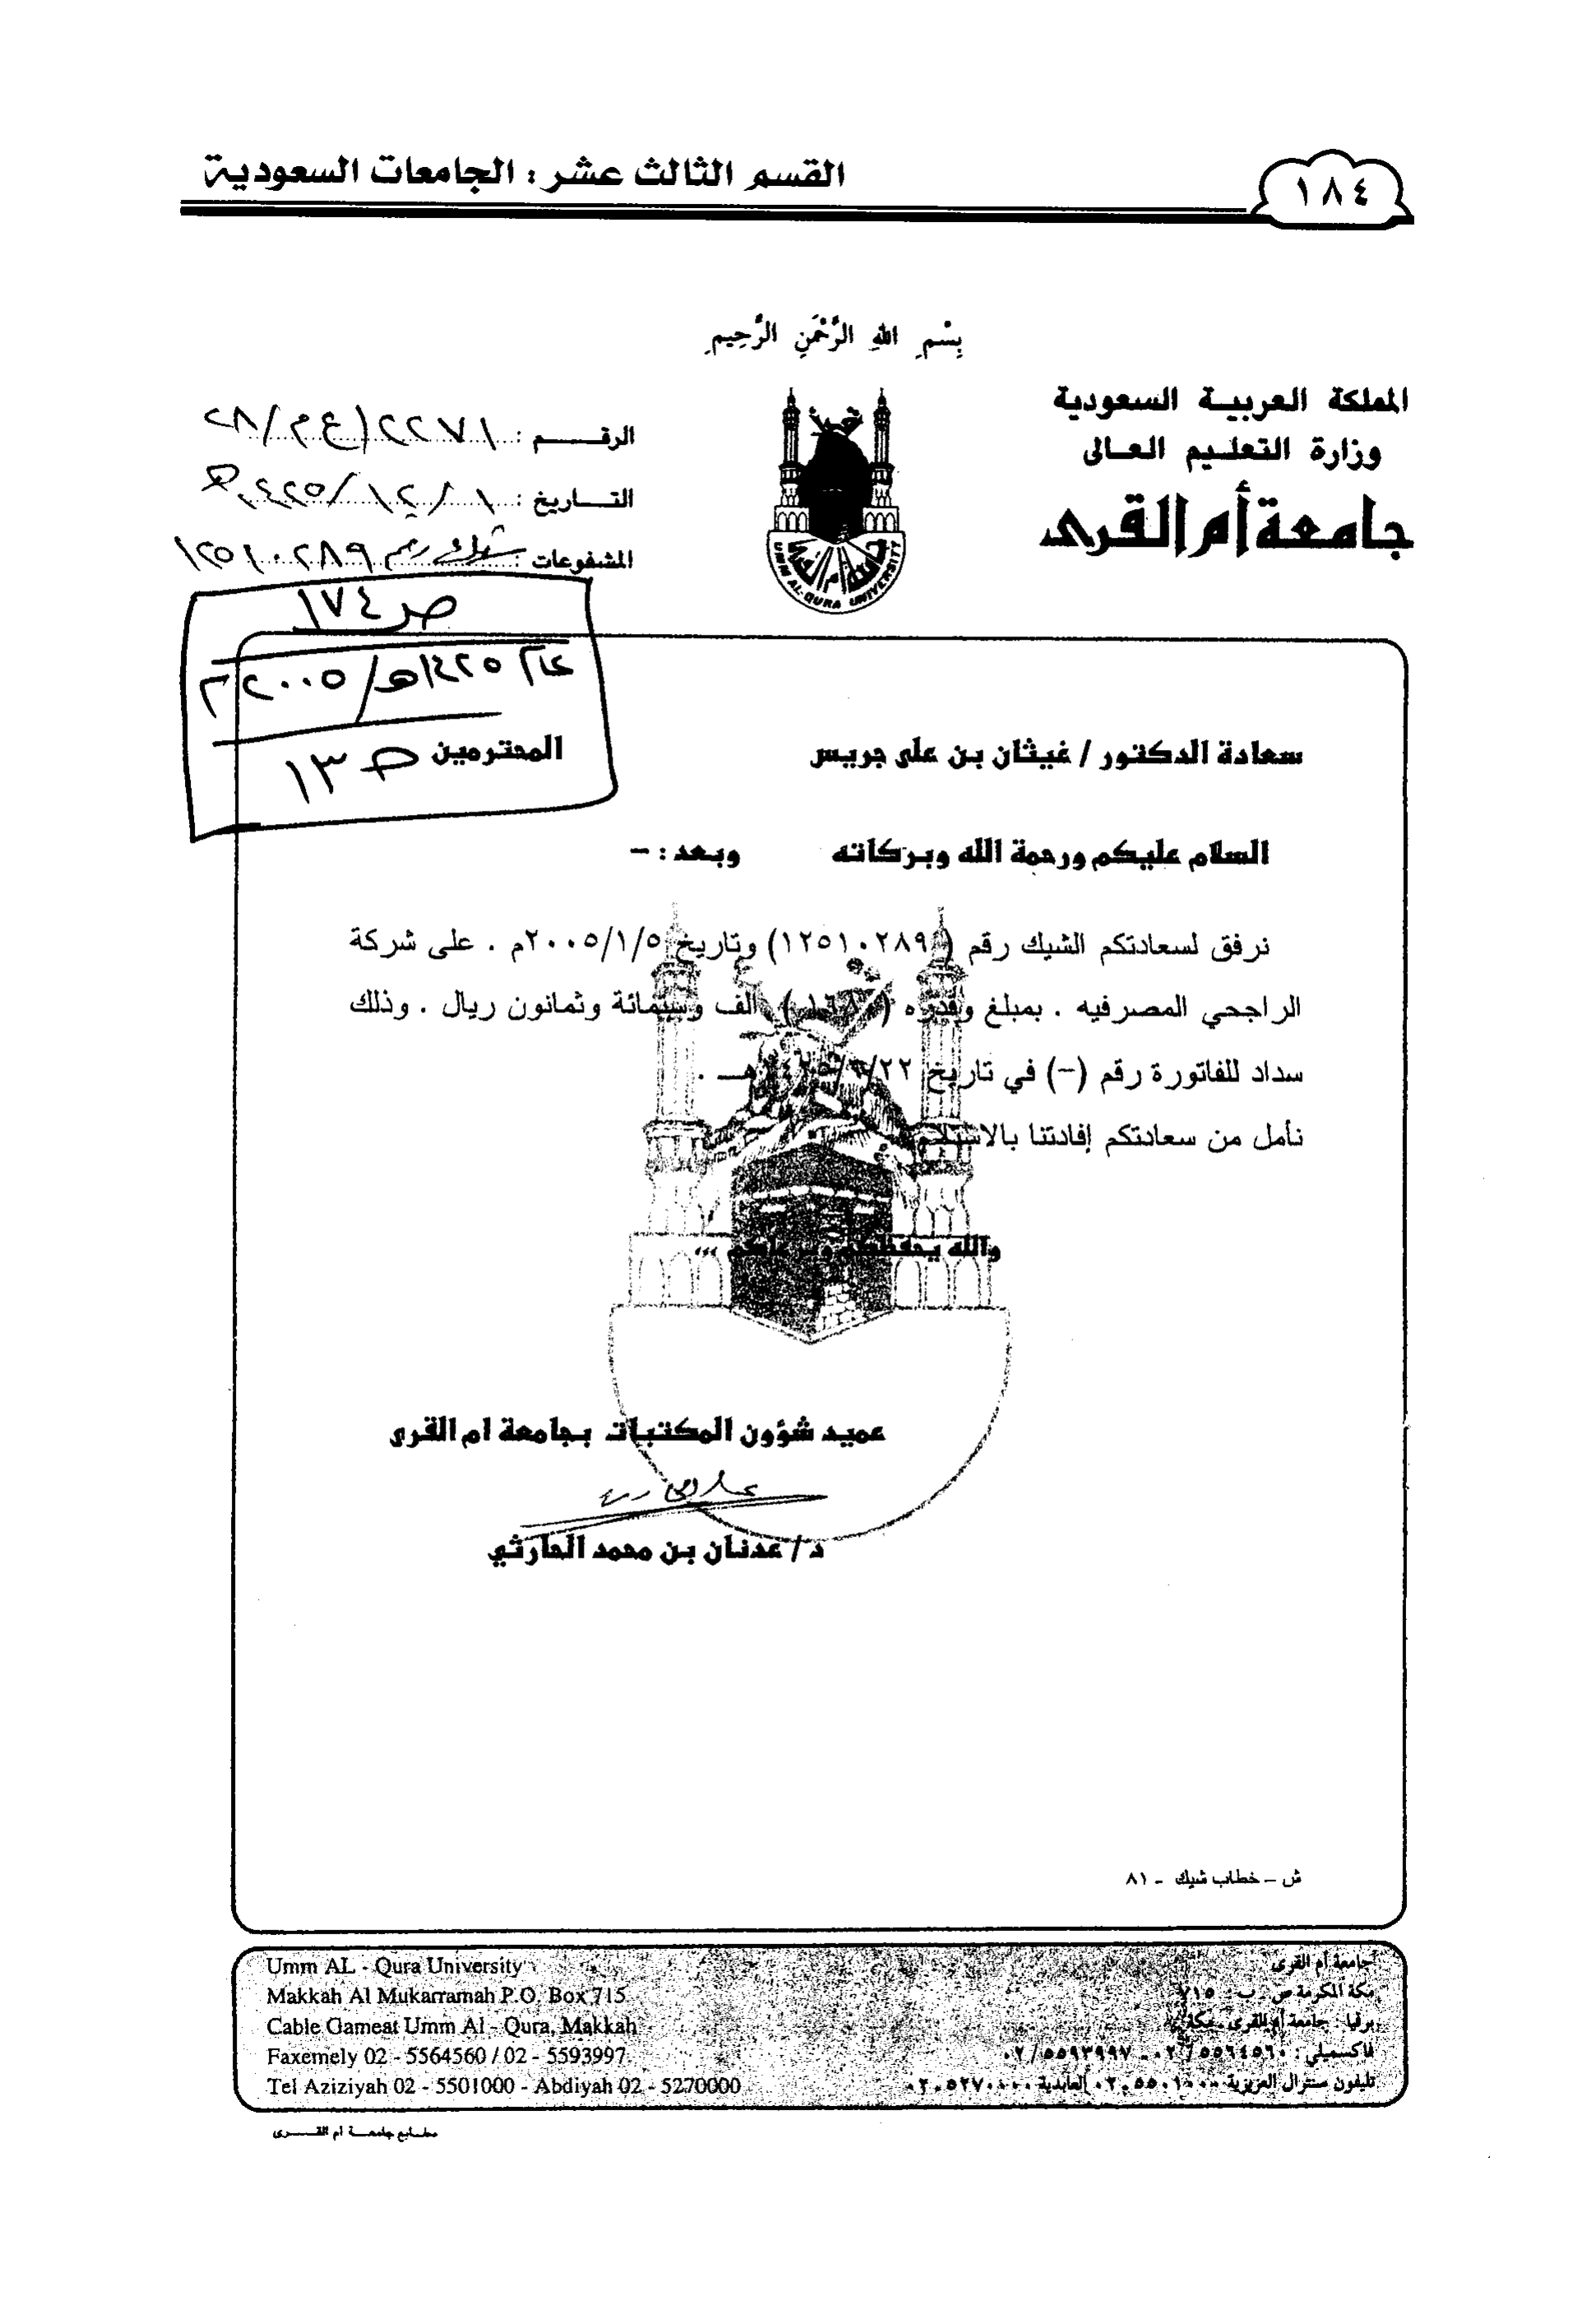 ١٨٤
القسم الثالث عشر : الجامعات السعودية
بِسْمِ اللهِ الرَّحْمَنِ الرَّحِيمِ
المملكة العربية السعودية
وزارة التعليم العالى
جامعة أم القرى
UMM AL-QURA UNIVERSITY
الرقم : ٢٢٧١
التاريخ :
المشفوعات : شيك رقم ١٢٥١٠٢٨٩
ص ١٧٤
عام ١٤٢٥هـ/٢٠٠٥م
ج ١٣
سعادة الدكتور / غيثان بن على جريس المحترمين
السلام عليكم ورحمة الله وبركاته وبعد : –
نرفق لسعادتكم الشيك رقم (١٢٥١٠٢٨٩) وتاريخ ٢٠٠٥/١/٥م . على شركة
الراجحي المصرفيه . بمبلغ وقدره (١٦٨٠) الف وستمائة وثمانون ريال . وذلك
سداد للفاتورة رقم (–) في تاريخ ١٤٢٥/٩/٢٢هـ .
نأمل من سعادتكم إفادتنا بالاستلام
والله يحفظكم ويرعاكم ,,,
عميد شؤون المكتبات بجامعة ام القرى
د/ عدنان بن محمد الحارثي
ش – خطاب شيك - ٨١
Umm AL - Qura University
Makkah Al Mukarramah P.O. Box 715
Cable Gameat Umm Al - Qura, Makkah
Faxemely 02 - 5564560 / 02 - 5593997
Tel Aziziyah 02 - 5501000 - Abdiyah 02 - 5270000
جامعة أم القرى
مكة المكرمة ص . ب : ٧١٥
برقيا : جامعة أم القرى - مكة
فاكسميلى : ٥٥٦٤٥٦٠ / ٠٢ - ٥٥٩٣٩٩٧ / ٠٢
تليفون سنترال العزيزية ٥٥٠١٠٠٠ - ٠٢ العابدية ٥٢٧٠٠٠٠ - ٠٢
مطابع جامعة أم القرى